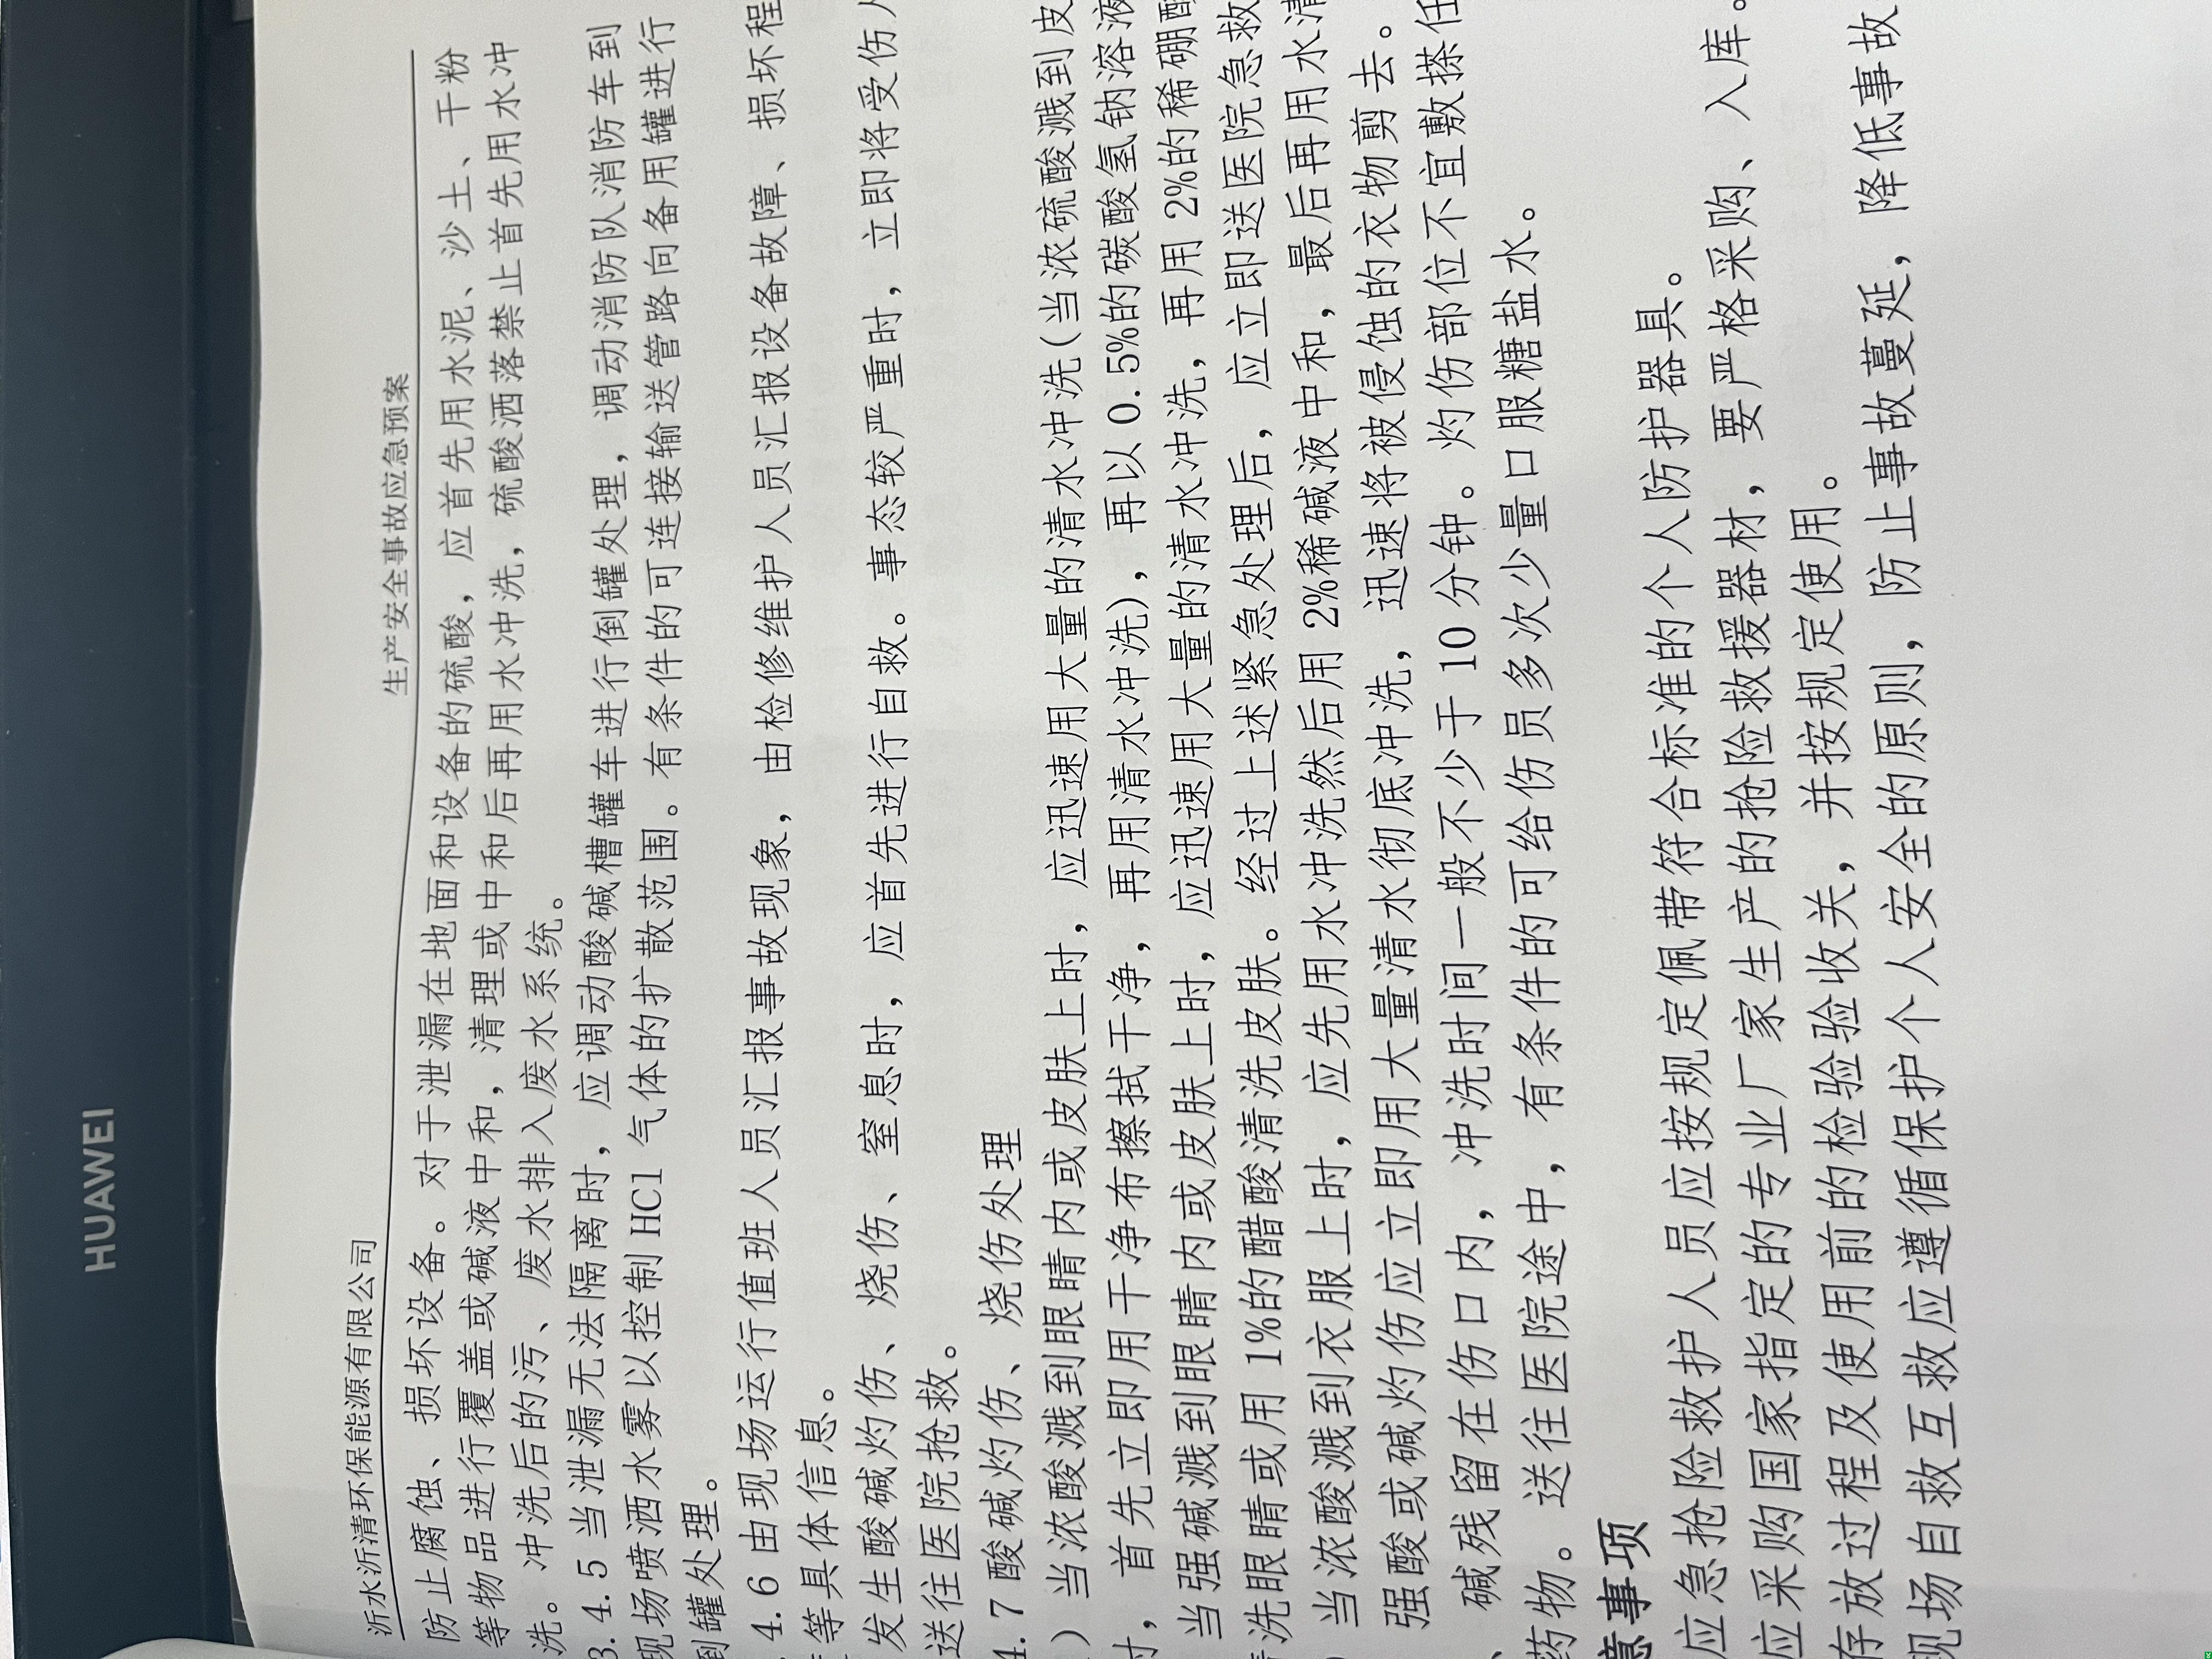 HUAWEI
沂水沂清环保能源有限公司 生产安全事故应急预案
防止腐蚀、损坏设备。对于泄漏在地面和设备的硫酸，应首先用水泥、沙土、干粉
等物品进行覆盖或碱液中和，清理或中和后再用水冲洗，硫酸洒落禁止首先用水冲
洗。冲洗后的污、废水排入废水系统。
3.4.5 当泄漏无法隔离时，应调动酸碱槽罐车进行倒罐处理，调动消防队消防车到
现场喷洒水雾以控制 HCl 气体的扩散范围。有条件的可连接输送管路向备用罐进行
倒罐处理。
4.6 由现场运行值班人员汇报事故现象，由检修维护人员汇报设备故障、损坏程
等具体信息。
发生酸碱灼伤、烧伤、窒息时，应首先进行自救。事态较严重时，立即将受伤人
送往医院抢救。
4.7 酸碱灼伤、烧伤处理
）当浓酸溅到眼睛内或皮肤上时，应迅速用大量的清水冲洗（当浓硫酸溅到皮
时，首先立即用干净布擦拭干净，再用清水冲洗），再以 0.5%的碳酸氢钠溶液
当强碱溅到眼睛内或皮肤上时，应迅速用大量的清水冲洗，再用 2%的稀硼酸
清洗眼睛或用 1%的醋酸清洗皮肤。经过上述紧急处理后，应立即送医院急救
）当浓酸溅到衣服上时，应先用水冲洗然后用 2%稀碱液中和，最后再用水清
强酸或碱灼伤应立即用大量清水彻底冲洗，迅速将被侵蚀的衣物剪去。
、碱残留在伤口内，冲洗时间一般不少于 10 分钟。灼伤部位不宜敷搽任
药物。送往医院途中，有条件的可给伤员多次少量口服糖盐水。
意事项
应急抢险救护人员应按规定佩带符合标准的个人防护器具。
应采购国家指定的专业厂家生产的抢险救援器材，要严格采购、入库。
存放过程及使用前的检验验收关，并按规定使用。
现场自救互救应遵循保护个人安全的原则，防止事故蔓延，降低事故